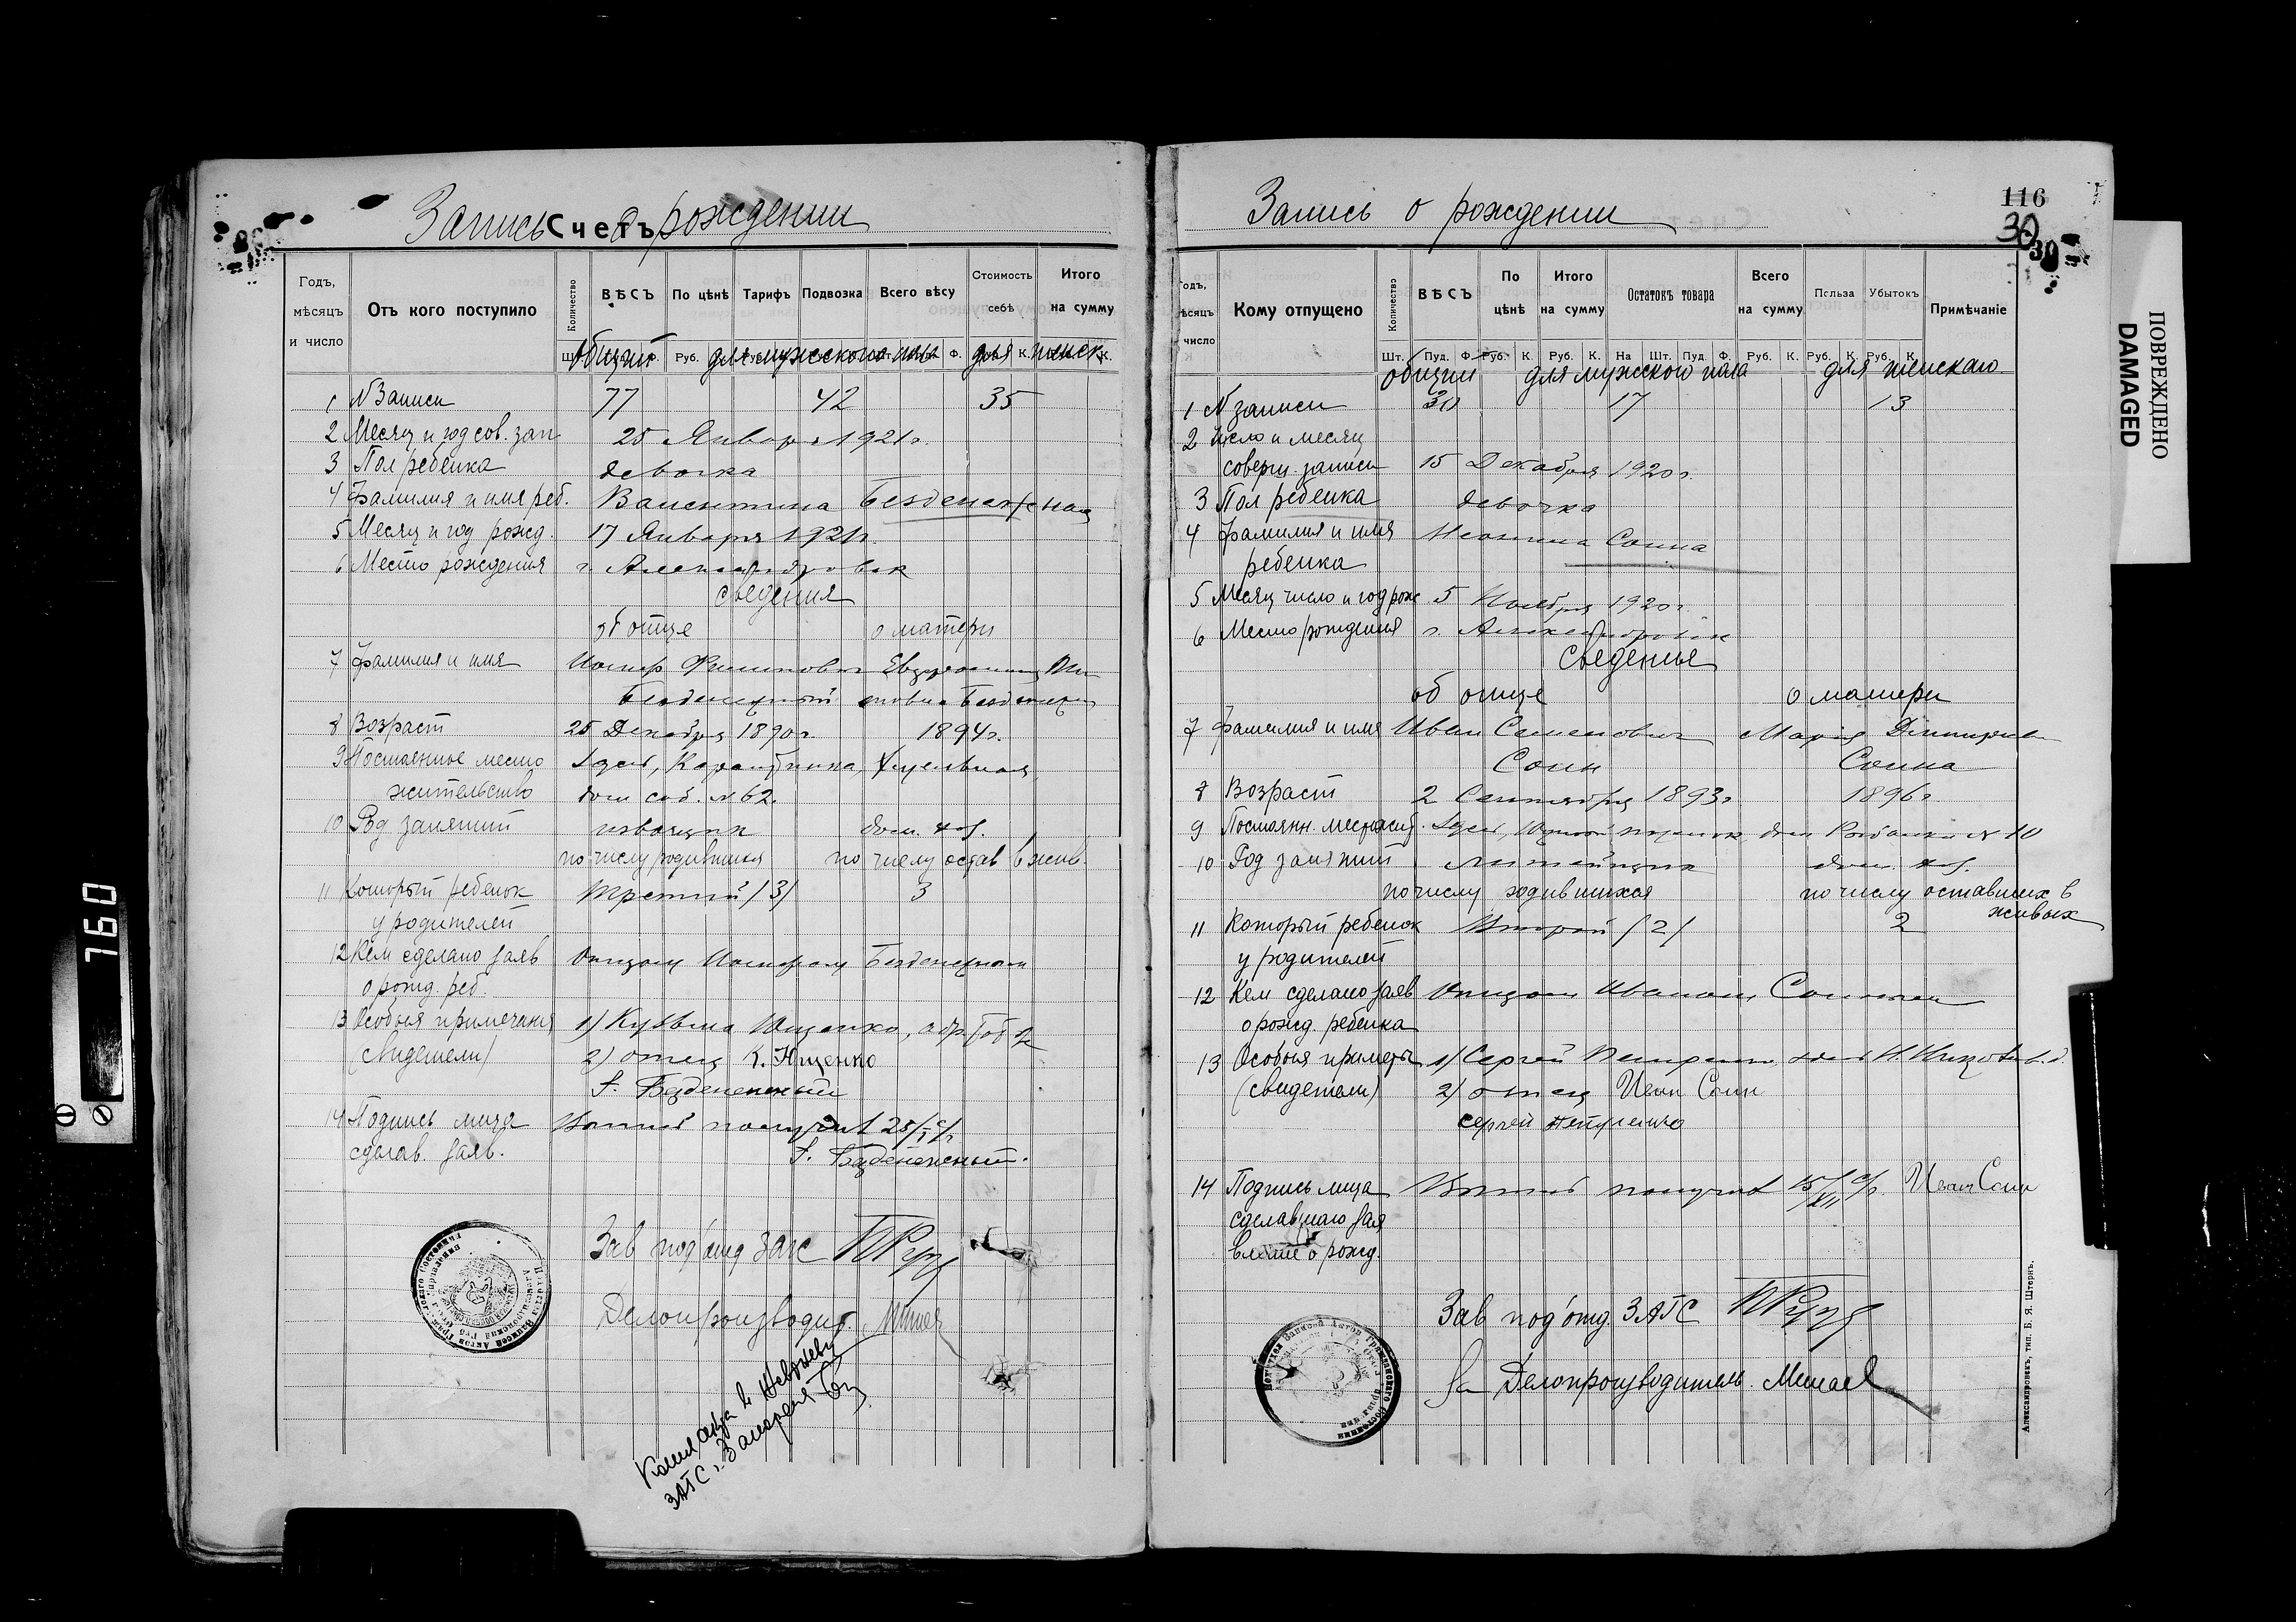 Запись Счетъ о рождении
Годъ, мѣсяцъ и число
Отъ кого поступило
Количество
ВѢСЪ
По цѣнѣ
Тарифъ
Подвозка
Всего вѣсу
Стоимость себѣ
Итого на сумму
общий для мужского пола для женск.
1 N Записи 77 42 35
2 Месяц и год сов. зап 25 Января 1921 г.
3 Пол ребенка девочка
4 Фамилия и имя реб. Валентина Безденежная
5 Месяц и год рожд. 17 Января 1921 г.
6 Место рождения г. Александровск
сведения
об отце о матери
7 Фамилия и имя Иосиф Филипович
Безденежный
8 Возраст 25 Декабря 1890 г. 1894 г.
9 Постоянное место Здесь,
жительство дом соб. N 62.
10 Род занятий извощик дом. хоз.
по числу родившихся по числу остав в жив.
11 Который ребенок Третий /3/ 3
у родителей
12 Кем сделано заяв Отцом Иосифом Безденежным
о рожд. реб.
13 Особыя примечания 1) Кузьма Ющенко,
(свидетели) 2) отец К. Ющенко
Безденежный
14 Подпись лица Выпись получил 25/I с/г
сделав. заяв. Безденежный.
Зав под'отд ЗАГС
Делопроизводит.
ЗАГС г. Запорожья
Запись о рождении
116
30
30
Годъ, мѣсяцъ число
Кому отпущено
Количество
ВѢСЪ
По цѣнѣ
Итого на сумму
Остатокъ товара
Всего на сумму
Польза
Убытокъ
Примѣчаніе
Шт. Пуд. Ф. Руб. К. Руб. К. На Шт. Пуд. Ф. Руб. К. Руб. К. Руб. К.
общий для мужского пола для женскаго
1 N записи 30 17 13
2 Число и месяц
соверш. записи 15 Декабря 1920 г.
3 Пол ребенка девочка
4 Фамилия и имя Соина
ребенка
5 Месяц число и год рож 5 Ноября 1920 г.
6 Место рождения г. Александровск
Сведенье
об отце о матери
7 Фамилия и имя Иван Семенович Мария
Соин Соина
8 Возраст 2 Сентября 1893 г. 1896 г.
9 Постоянн. Здесь, Южный поселок, дом N 10
10 Род занятий Литейщик дом. хоз.
по числу родившихся по числу оставших в
живых
11 Который ребенок Второй /2/ 2
у родителей
12 Кем сделано заяв Отцом Иваном Соиным
о рожд. ребенка
13 Особыя примеры 1) Сергей
(свидетели) 2) отец Иван Соин
Сергей
14 Подпись лица Выпись получил 15/XII с/г. Иван Соин
сделавшаго зая
о рожд.
Зав под'отд ЗАГС
За Делопроизводитель
Александровскъ, тип. Б. Я. Штернъ.
ПОВРЕЖДЕНО
DAMAGED
760